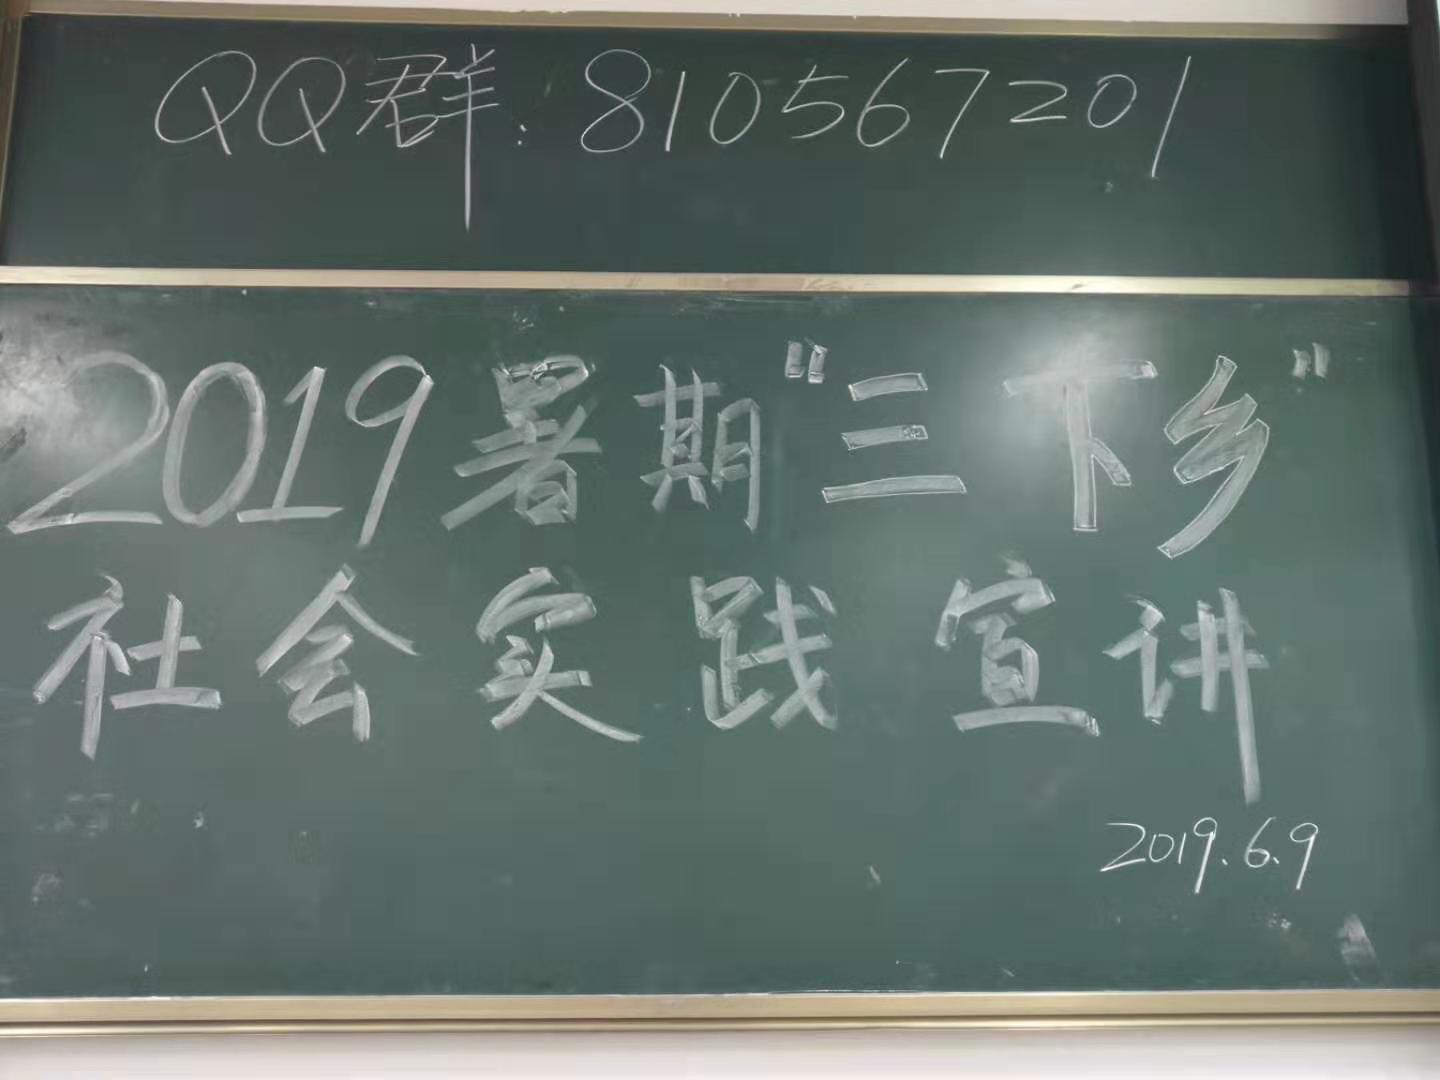 QQ群:810567201
2019暑期“三下乡”
社会实践宣讲
2019.6.9